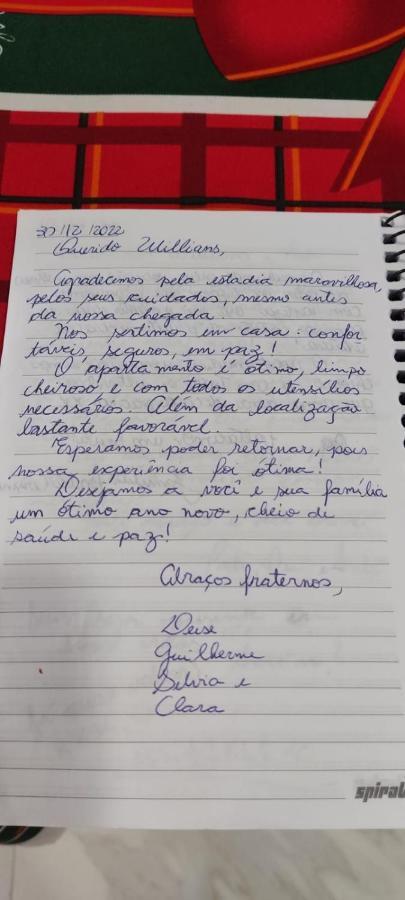 30/12/2022
Querido Willians,
Agradecemos pela estadia maravilhosa,
pelos seus cuidados, mesmo antes
da nossa chegada.
Nos sentimos em casa: confor
táveis, seguros, em paz!
O apartamento é ótimo, limpo
cheiroso, e com todos os utensílios
necessários. Além da localização
bastante favorável.
Esperamos poder retornar, pois
nossa experiência foi ótima!
Desejamos a você e sua família
um ótimo ano novo, cheio de
saúde e paz!
Abraços fraternos,
Deise
Guilherme
Silvia e
Clara
spiral